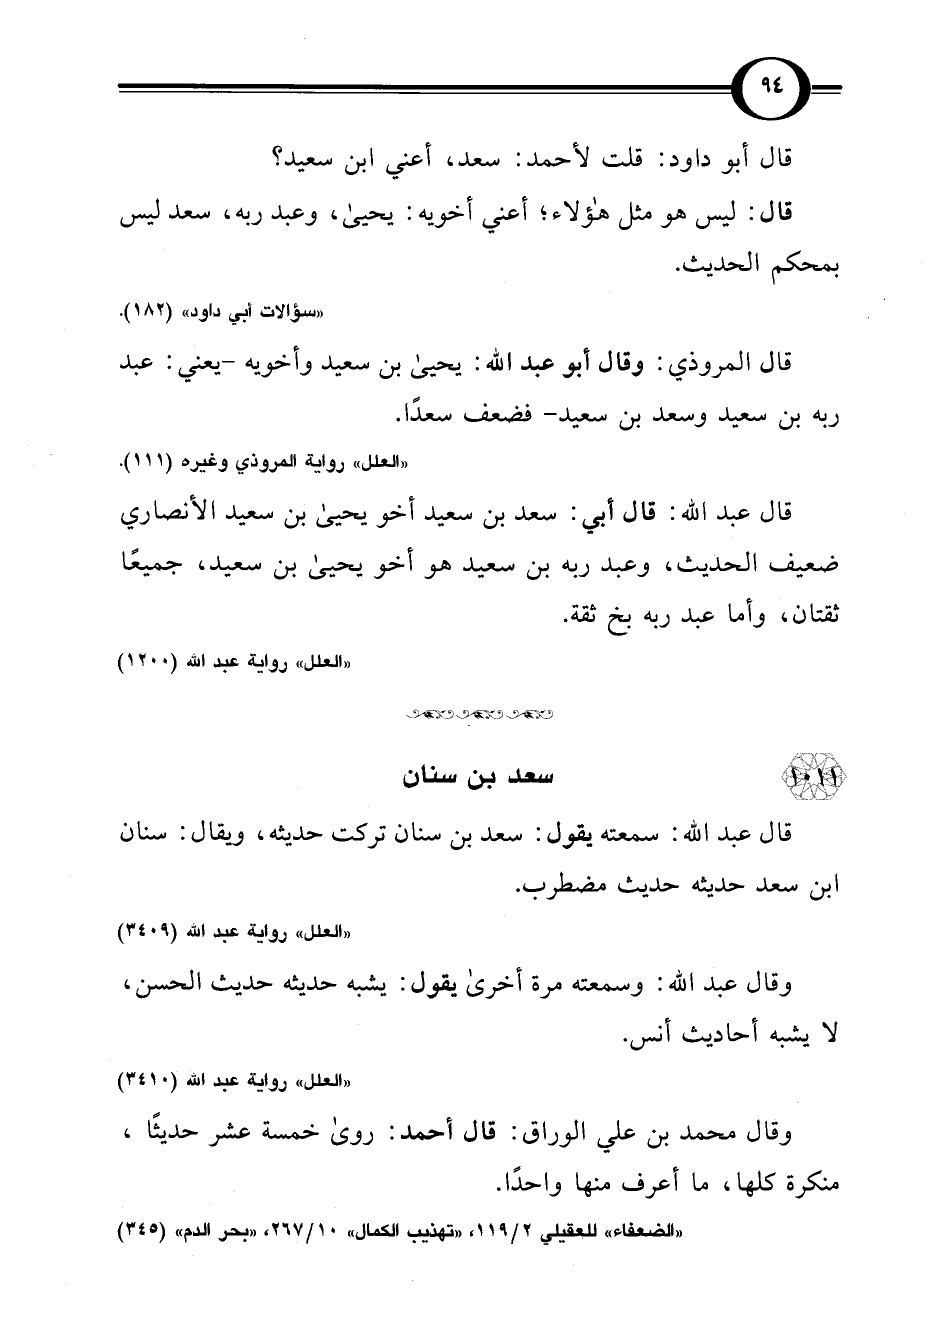 ٩٤
قال أبو داود: قلت لأحمد: سعد، أعني ابن سعيد؟
قال: ليس هو مثل هؤلاء؛ أعني أخويه: يحيىٰ، وعبد ربه، سعد ليس
بمحكم الحديث.
«سؤالات أبي داود» (١٨٢).
قال المروذي: وقال أبو عبد الله: يحيىٰ بن سعيد وأخويه -يعني: عبد
ربه بن سعيد وسعد بن سعيد- فضعف سعدًا.
«العلل» رواية المروذي وغيره (١١١).
قال عبد الله: قال أبي: سعد بن سعيد أخو يحيىٰ بن سعيد الأنصاري
ضعيف الحديث، وعبد ربه بن سعيد هو أخو يحيىٰ بن سعيد، جميعًا
ثقتان، وأما عبد ربه بخ ثقة.
«العلل» رواية عبد الله (١٢٠٠)
١٠١١ سعد بن سنان
قال عبد الله: سمعته يقول: سعد بن سنان تركت حديثه، ويقال: سنان
ابن سعد حديثه حديث مضطرب.
«العلل» رواية عبد الله (٣٤٠٩)
وقال عبد الله: وسمعته مرة أخرىٰ يقول: يشبه حديثه حديث الحسن،
لا يشبه أحاديث أنس.
«العلل» رواية عبد الله (٣٤١٠)
وقال محمد بن علي الوراق: قال أحمد: روىٰ خمسة عشر حديثًا ،
منكرة كلها، ما أعرف منها واحدًا.
«الضعفاء» للعقيلي ٢/ ١١٩، «تهذيب الكمال» ١٠/ ٢٦٧، «بحر الدم» (٣٤٥)